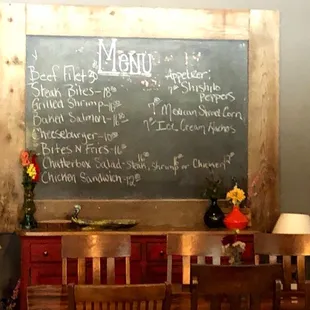 MENU
Beef Filet
Steak Bites-18
Grilled Shrimp-
Baked Salmon-
Cheeseburger-10
Bites N Fries-16
Chatterbox Salad- Steak, Shrimp or Chicken
Chicken Sandwich-12
Appetizer:
Shishito
Peppers
7 Mexican Street Corn
7 Ice Cream Nachos